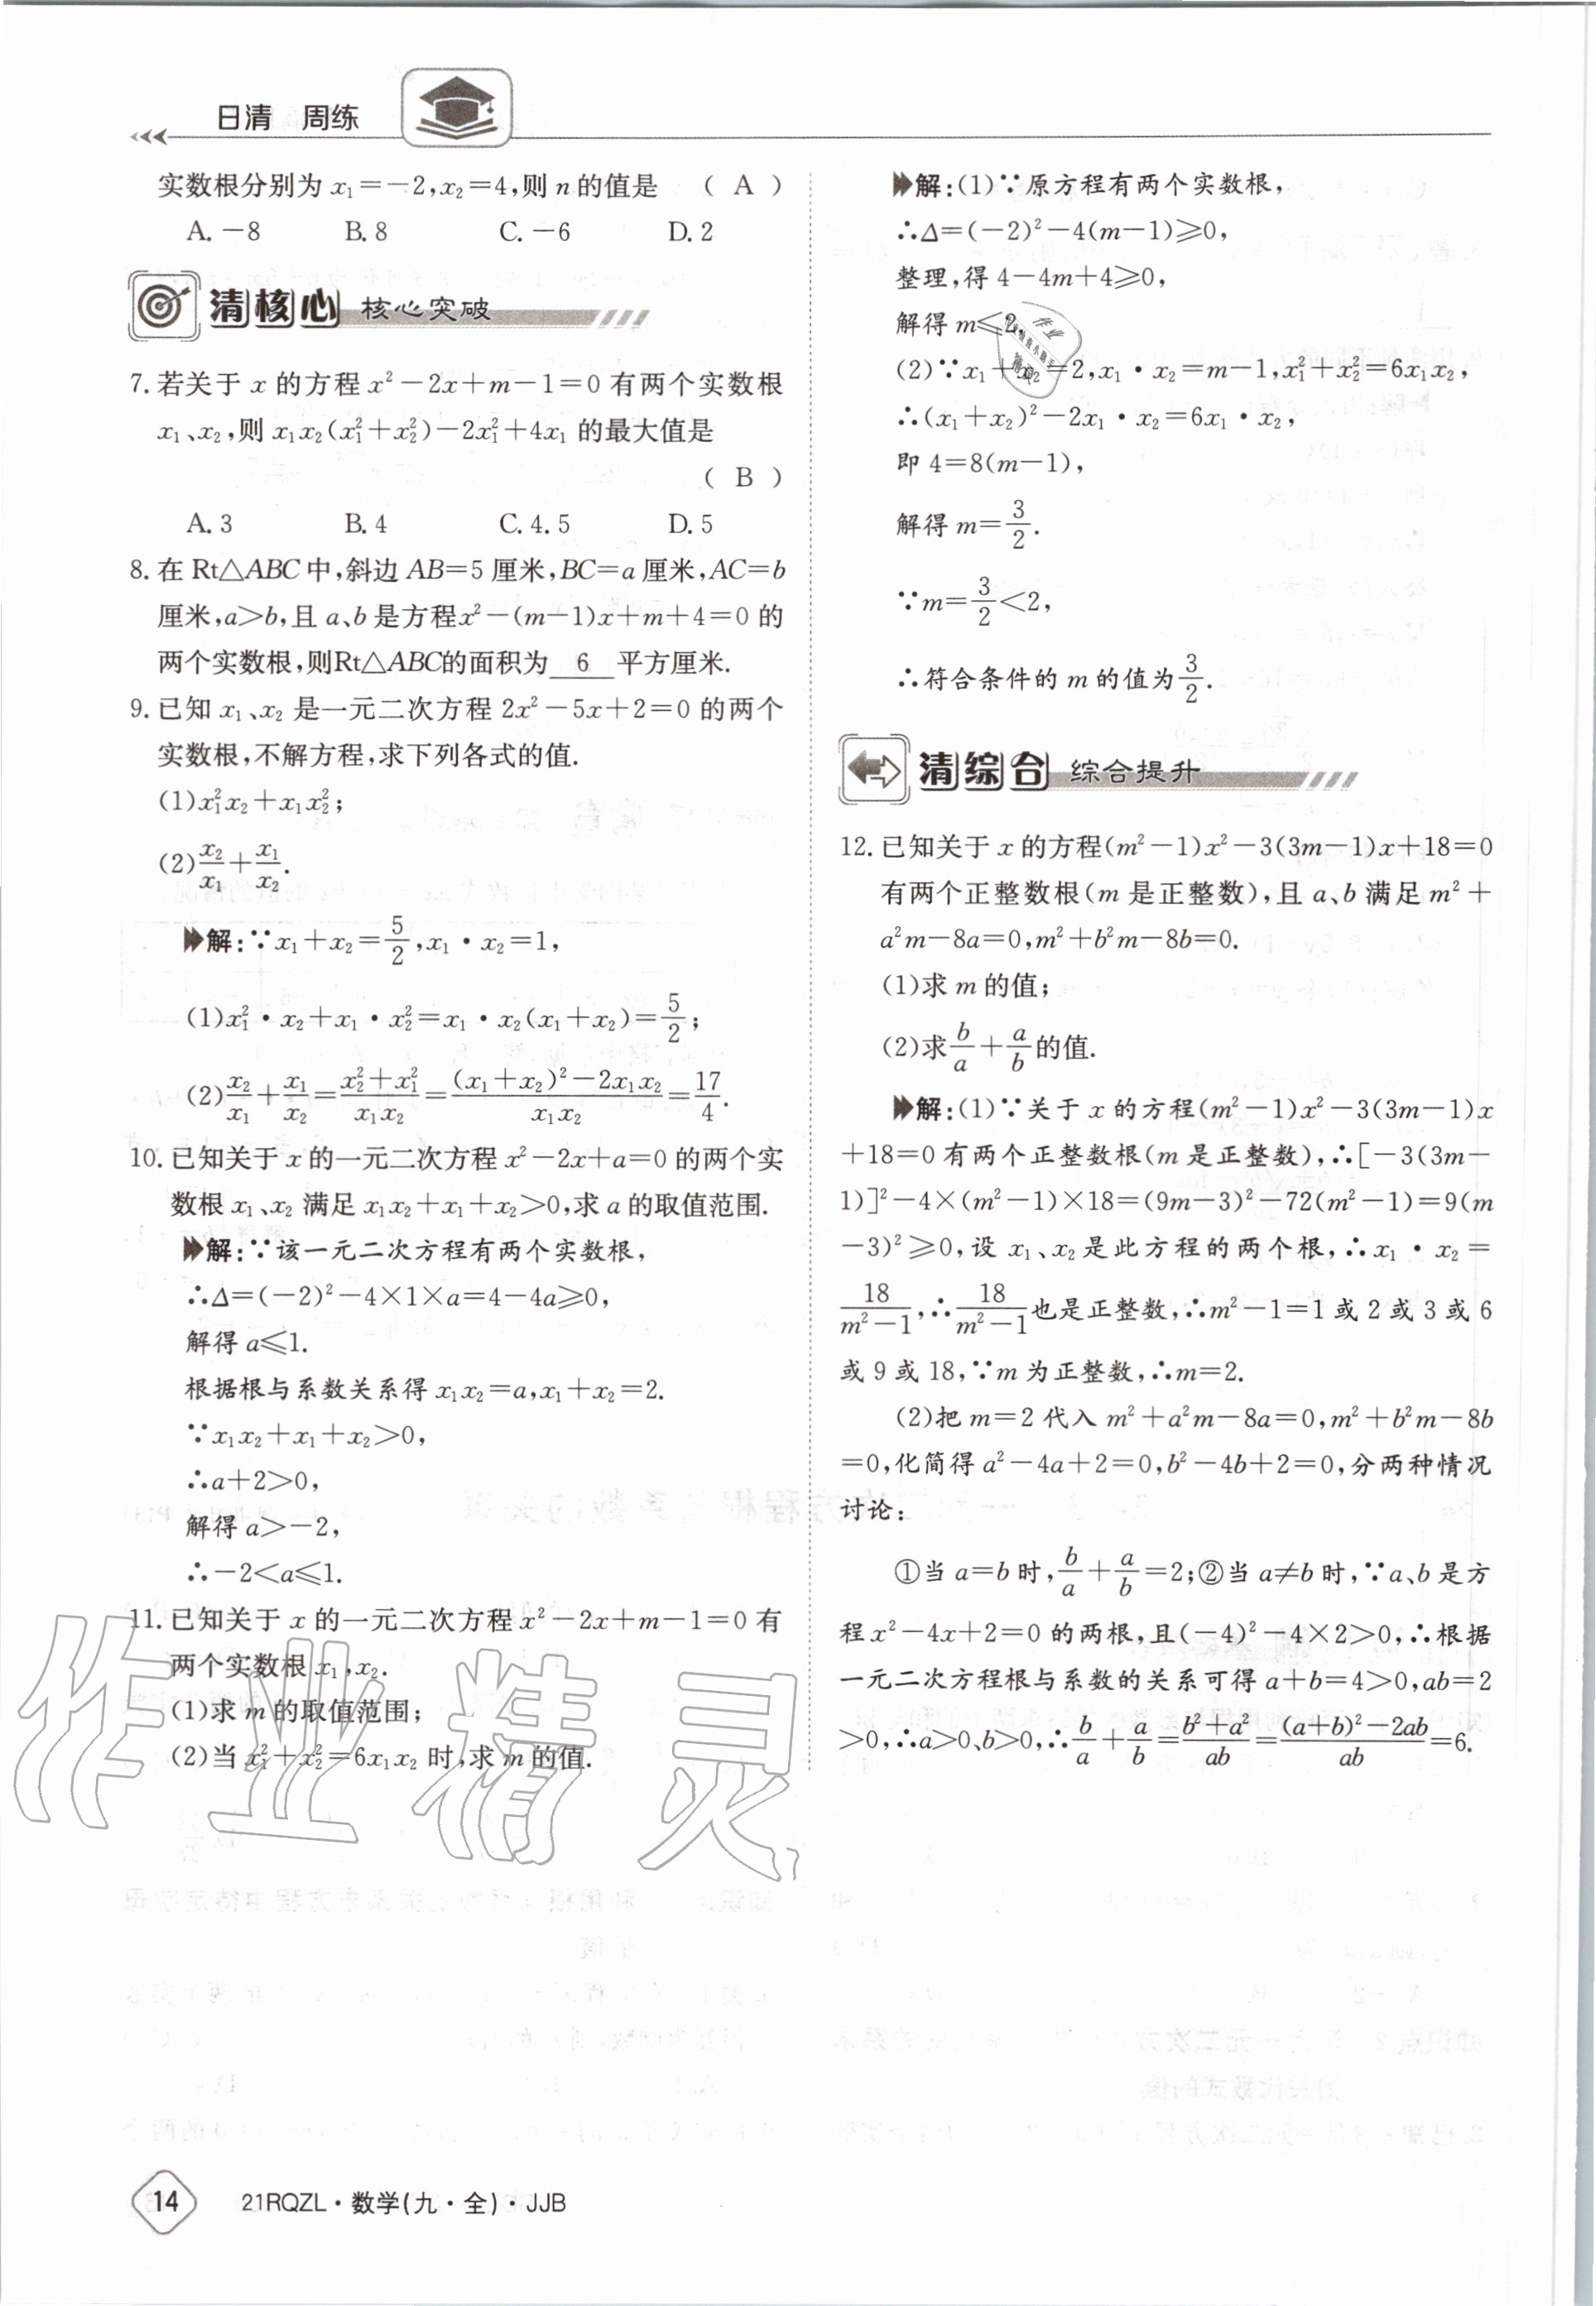 日清 周练
实数根分别为 x₁=－2,x₂=4,则 n 的值是 ( A )
A. －8 B. 8 C. －6 D. 2
清核心 核心突破
7. 若关于 x 的方程 x²－2x＋m－1＝0 有两个实数根
x₁、x₂,则 x₁x₂(x₁²＋x₂²)－2x₁²＋4x₁ 的最大值是
( B )
A. 3 B. 4 C. 4. 5 D. 5
8. 在 Rt△ABC 中,斜边 AB＝5 厘米,BC＝a 厘米,AC＝b
厘米,a＞b,且 a、b 是方程x²－(m－1)x＋m＋4＝0 的
两个实数根,则Rt△ABC的面积为 6 平方厘米.
9. 已知 x₁、x₂ 是一元二次方程 2x²－5x＋2＝0 的两个
实数根,不解方程,求下列各式的值.
(1)x₁²x₂＋x₁x₂²;
(2)x₂/x₁＋x₁/x₂.
解:∵x₁＋x₂＝5/2,x₁·x₂＝1,
(1)x₁²·x₂＋x₁·x₂²＝x₁·x₂(x₁＋x₂)＝5/2;
(2)x₂/x₁＋x₁/x₂＝(x₂²＋x₁²)/(x₁x₂)＝((x₁＋x₂)²－2x₁x₂)/(x₁x₂)＝17/4.
10. 已知关于 x 的一元二次方程 x²－2x＋a＝0 的两个实
数根 x₁、x₂ 满足 x₁x₂＋x₁＋x₂＞0,求 a 的取值范围.
解:∵该一元二次方程有两个实数根,
∴Δ＝(－2)²－4×1×a＝4－4a≥0,
解得 a≤1.
根据根与系数关系得 x₁x₂＝a,x₁＋x₂＝2.
∵x₁x₂＋x₁＋x₂＞0,
∴a＋2＞0,
解得 a＞－2,
∴－2＜a≤1.
11. 已知关于 x 的一元二次方程 x²－2x＋m－1＝0 有
两个实数根 x₁,x₂.
(1)求 m 的取值范围;
(2)当 x₁²＋x₂²＝6x₁x₂ 时,求 m 的值.
解:(1)∵原方程有两个实数根,
∴Δ＝(－2)²－4(m－1)≥0,
整理,得 4－4m＋4≥0,
解得 m≤2.
(2)∵x₁＋x₂＝2,x₁·x₂＝m－1,x₁²＋x₂²＝6x₁x₂,
∴(x₁＋x₂)²－2x₁·x₂＝6x₁·x₂,
即 4＝8(m－1),
解得 m＝3/2.
∵m＝3/2＜2,
∴符合条件的 m 的值为3/2.
清综合 综合提升
12. 已知关于 x 的方程(m²－1)x²－3(3m－1)x＋18＝0
有两个正整数根(m 是正整数),且 a、b 满足 m²＋
a²m－8a＝0,m²＋b²m－8b＝0.
(1)求 m 的值;
(2)求b/a＋a/b的值.
解:(1)∵关于 x 的方程(m²－1)x²－3(3m－1)x
＋18＝0 有两个正整数根(m 是正整数),∴[－3(3m－
1)]²－4×(m²－1)×18＝(9m－3)²－72(m²－1)＝9(m
－3)²≥0,设 x₁、x₂ 是此方程的两个根,∴x₁·x₂＝
18/(m²－1),∴18/(m²－1)也是正整数,∴m²－1＝1 或 2 或 3 或 6
或 9 或 18,∵m 为正整数,∴m＝2.
(2)把 m＝2 代入 m²＋a²m－8a＝0,m²＋b²m－8b
＝0,化简得 a²－4a＋2＝0,b²－4b＋2＝0,分两种情况
讨论:
①当 a＝b 时,b/a＋a/b＝2;②当 a≠b 时,∵a、b 是方
程 x²－4x＋2＝0 的两根,且(－4)²－4×2＞0,∴根据
一元二次方程根与系数的关系可得 a＋b＝4＞0,ab＝2
＞0,∴a＞0、b＞0,∴b/a＋a/b＝(b²＋a²)/ab＝((a＋b)²－2ab)/ab＝6.
作业精灵
14 21RQZL·数学(九·全)·JJB